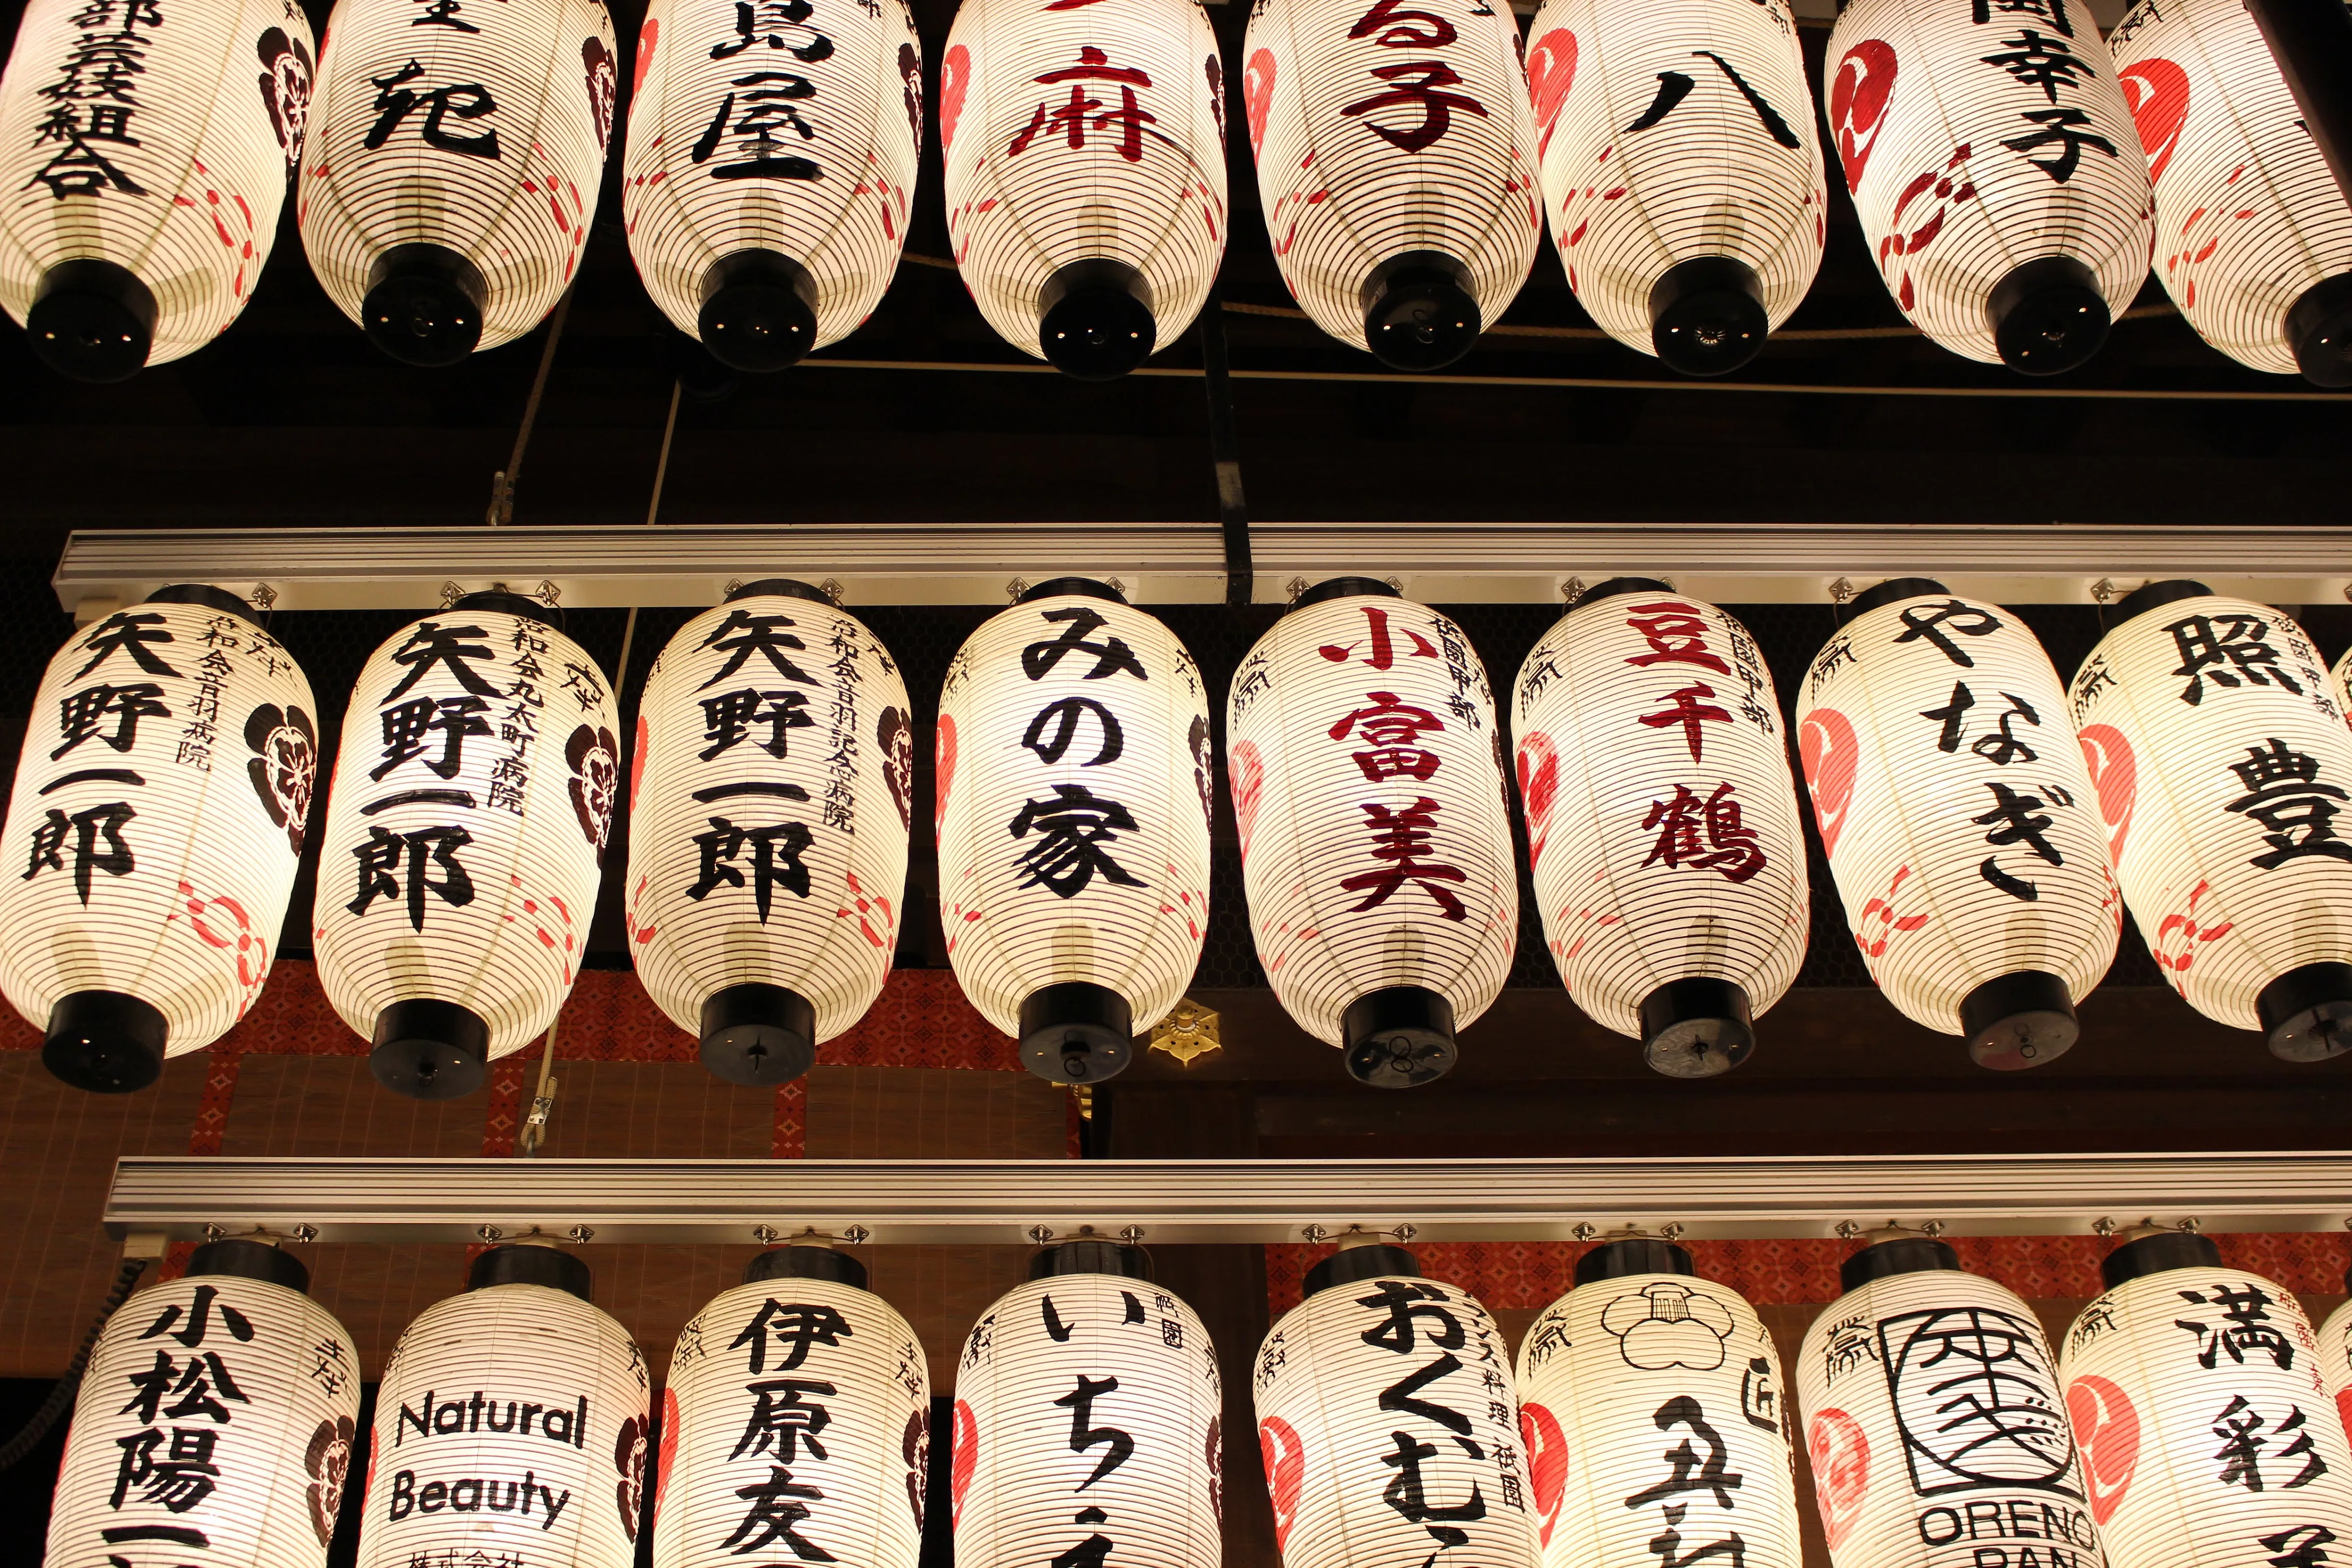 部芸妓組合
島屋
麻
る子
八
岡幸子
矢野一郎
音羽病院
矢野一郎
洛和会丸太町病院
矢野一郎
洛和会音羽記念病院
みの家
小富美
祇園甲部
豆千鶴
祇園甲部
やなぎ
照豊
小松陽一
Natural
Beauty
株式会社
伊原友
いちえ
祇園
おくむら
フランス料理 祇園
匠
満彩
ORENO
PAN